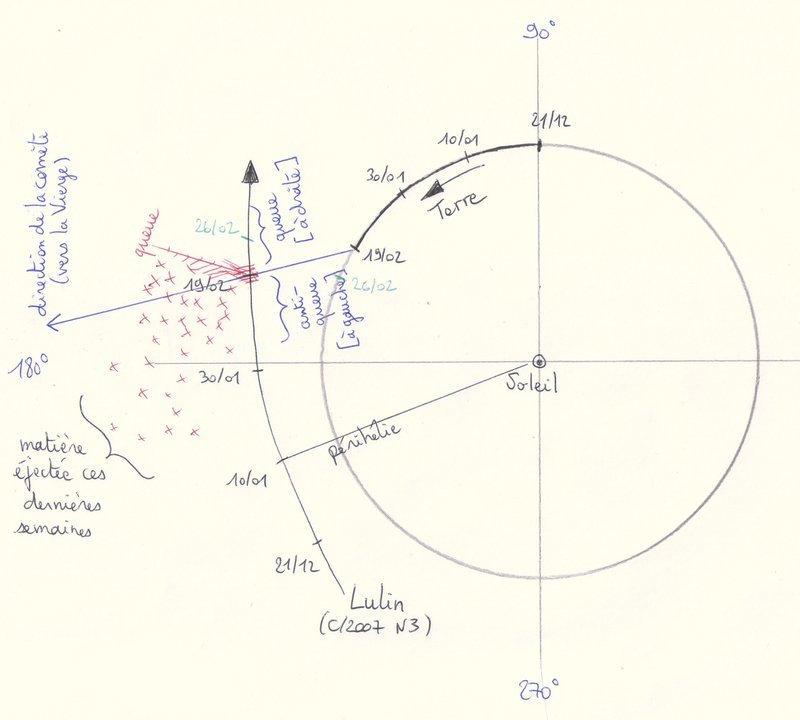 90°
21/12
10/01
30/01
Terre
19/02
26/02
direction de la comète
(vers la Vierge)
queue
26/02
queue
[à droite]
19/02
anti-
queue
[à gauche]
180°
30/01
Soleil
périhélie
10/01
matière
éjectée ces
dernières
semaines
21/12
Lulin
(C/2007 N3)
270°